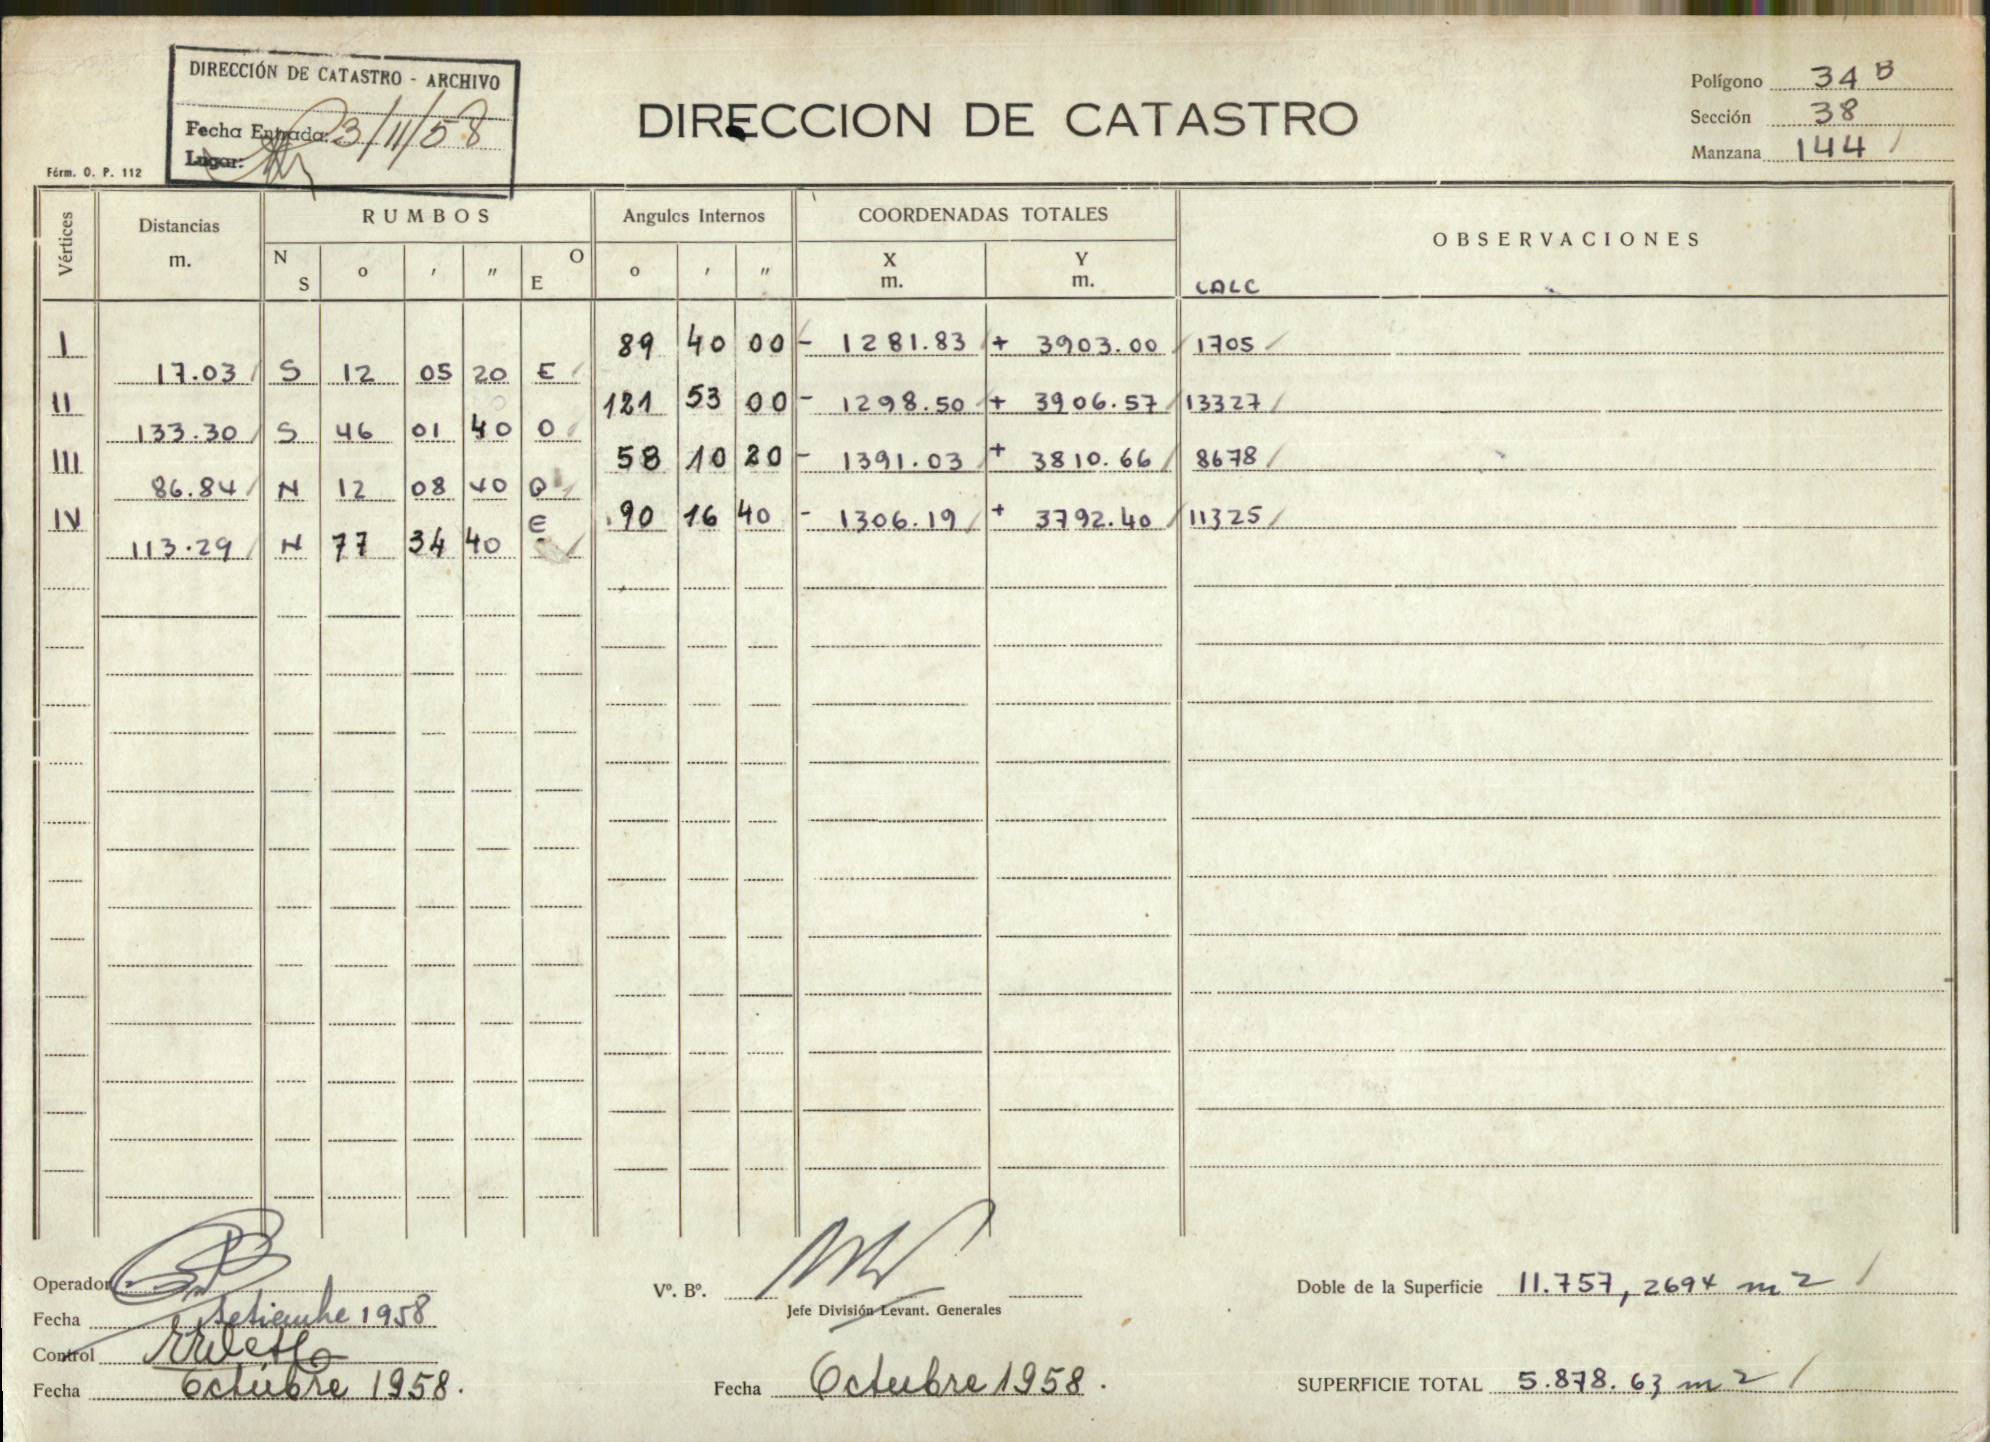 DIRECCIÓN DE CATASTRO - ARCHIVO
Fecha Entrada: 3/11/58
Lugar:
Fórm. O. P. 112
DIRECCION DE CATASTRO
Polígono 34 B
Sección 38
Manzana 144
Vértices
Distancias m.
RUMBOS
N S o ' " O E
Angulos Internos
o ' "
COORDENADAS TOTALES
X m. Y m.
OBSERVACIONES
CALC
I 89 40 00 - 1281.83 + 3903.00 1705
17.03 S 12 05 20 E
II 121 53 00 - 1298.50 + 3906.57 13327
133.30 S 46 01 40 O
III 58 10 20 - 1391.03 + 3810.66 8678
86.84 N 12 08 40 O
IV 90 16 40 - 1306.19 + 3792.40 11325
113.29 N 77 34 40 E
Operador
Fecha Setiembre 1958
Control
Fecha Octubre 1958.
Vº. Bº.
Jefe División Levant. Generales
Fecha Octubre 1958.
Doble de la Superficie 11.757,2694 m2
SUPERFICIE TOTAL 5.878.63 m2